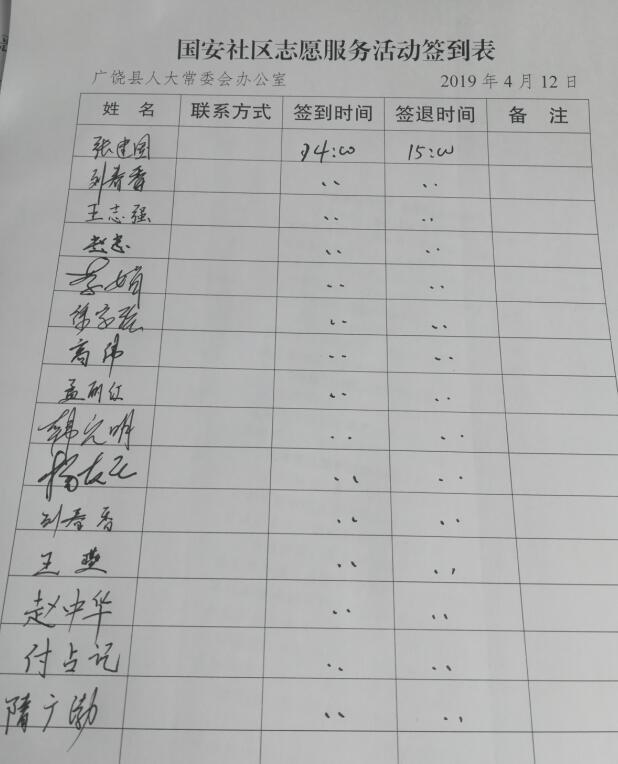 国安社区志愿服务活动签到表
广饶县人大常委会办公室 2019年4月12日
姓 名 联系方式 签到时间 签退时间 备 注
张建国 14:00 15:00
刘春香 〃 〃
王志强 〃 〃
赵忠 〃 〃
李娟 〃 〃
徐家磊 〃 〃
高伟 〃 〃
孟丽红 〃 〃
韩完明 〃 〃
〃 〃
刘春香 〃 〃
王燕 〃 〃
赵中华 〃 〃
付占记 〃 〃
隋广渤 〃 〃